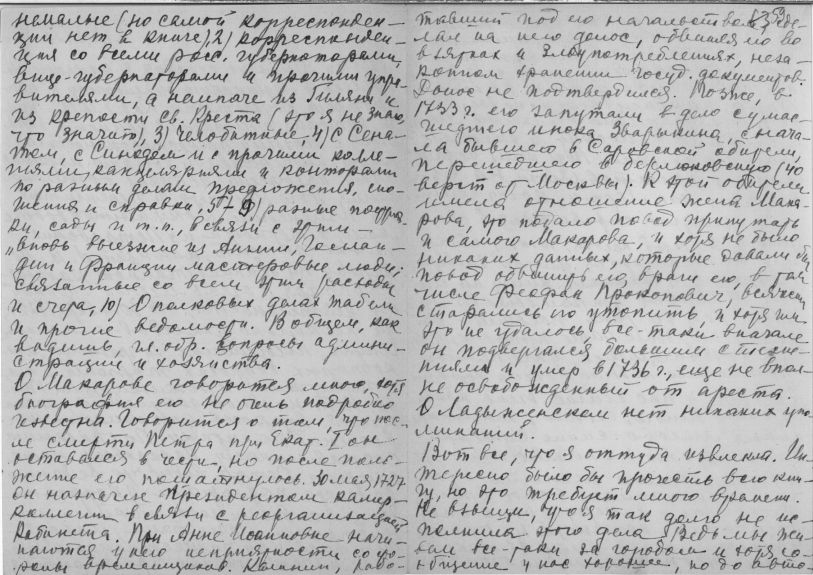 немалые (но самой корреспонден-
ции нет в книге), 2) корреспонден-
ция со всеми росс. губернаторами,
вице-губернаторами и прочими упра-
вителями, а наипаче из Гиляни и
из крепости св. Креста (это я не знаю,
что значит), 3) челобитные, 4) с Сена-
том, с Синодом и с прочими колле-
гиями, канцеляриями и конторами
по разным делам предложения, сно-
шения и справки, 5-9) разные
сады и т.п., в связи с этим -
"вновь выезжие из Англии, Голлан-
дии и Франции мастеровые люди,
связанные со всем этим расходы
и счета, 10) О полковых делах табели
и прочие ведомости. В общем, как
видишь, гл. обр. вопросы админи-
страции и хозяйства.
О Макарове говорится много, хотя
биография его не очень подробно
известна. Говорится о том, что пос-
ле смерти Петра при Екат. I он
оставался в чести, но после поло-
жение его пошатнулось. 30 мая 1727
он назначен президентом камер-
коллегии в связи с реорганизацией
Кабинета. При Анне Иоанновне начи-
наются у него неприятности со сто-
роны временщиков. рабо-
тавший под его начальством, сде-
лал на него донос, обвиняя его во
взятках и злоупотреблениях, неза-
конном хранении госуд. документов.
Донос не подтвердился. Позже, в
1733 г. его запутали в дело сумас-
шедшего инока Зварыкина, снача-
ла бывшего в Саровской обители,
перешедшего в Берлюковскую (40
верст от Москвы). К этой обители
имела отношение жена Мака-
рова, это подало повод припутать
и самого Макарова, и хотя не было
никаких данных, которые давали бы
повод обвинить его, враги его, в том
числе Феофан Прокопович, всячески
старались его утопить, и хотя им
это не удалось все-таки, вначале
он подвергался большим стесне-
ниям и умер в 1736 г., еще не впол-
не освобожденный от ареста.
О Ладыженском нет никаких упо-
минаний.
Вот все, что я оттуда извлекла. Ин-
тересно было бы прочесть всю кни-
гу, но это требует много времени.
Не взыщи, что я так долго не ис-
полнила этого дела. Ведь мы жи-
вем все-таки за городом и хотя со-
общение у нас хорошее, но до авто-